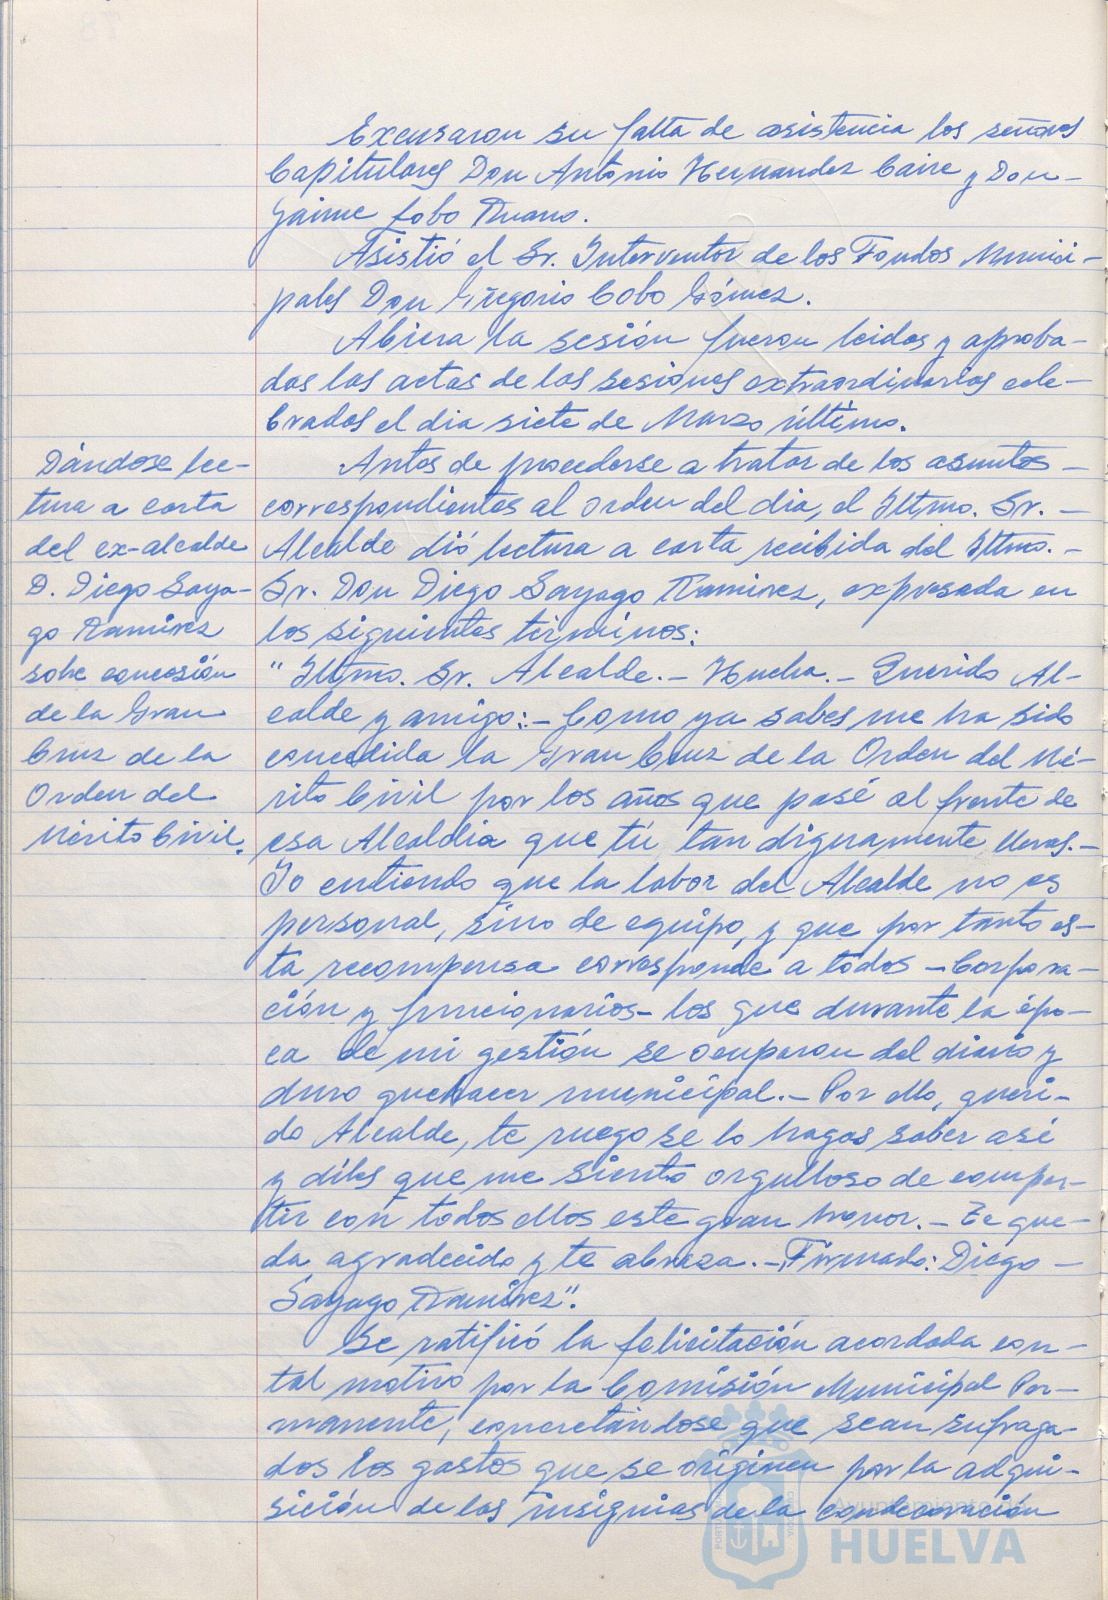 Excusaron su falta de asistencia los señores
Capitulares Don Antonio Hernandez Caire y Don-
Jaime Lobo Ruano.
Asistió el Sr. Interventor de los Fondos Munici-
pales Don Gregorio Cobo Gómez.
Abiera la sesión fueron leidas y aproba-
das las actas de las sesiones extraordinarias cele-
bradas el dia siete de Marzo último.
Antes de procederse a tratar de los asuntos-
correspondientes al orden del dia, el Iltmo. Sr.-
Alcalde dió lectura a carta recibida del Iltmo.-
Sr. Don Diego Sayago Ramirez, expresada en
los siguientes términos:
"Iltmo. Sr. Alcalde.- Huelva.- Querido Al-
calde y amigo:- Como ya sabes me ha sido
concedida la Gran Cruz de la Orden del Mé-
rito Civil por los años que pasé al frente de
esa Alcaldia que tú tan dignamente llevas.-
Yo entiendo que la labor del Alcalde no es
personal, sino de equipo, y que por tanto es-
ta recompensa corresponde a todos -Corpora-
ción y funcionarios- los que durante la épo-
ca de mi gestión se ocuparon del diario y
duro quehacer municipal.- Por ello, queri-
do Alcalde, te ruego se lo hagas saber asi
y diles que me siento orgulloso de compar-
tir con todos ellos este gran honor.- Te que-
da agradecido y te abraza.- Firmado: Diego-
Sayago Ramirez".
Se ratificó la felicitación acordada con-
tal motivo por la Comisión Municipal Per-
manente, concretándose que sean sufraga-
dos los gastos que se originen por la adqui-
sición de las insignias de la condecoración
Dándose lec-
tura a carta
del ex-alcalde
D. Diego Saya-
go Ramirez
sobre concesión
de la Gran
Cruz de la
Orden del
Mérito Civil.
Ayuntamiento de
HUELVA